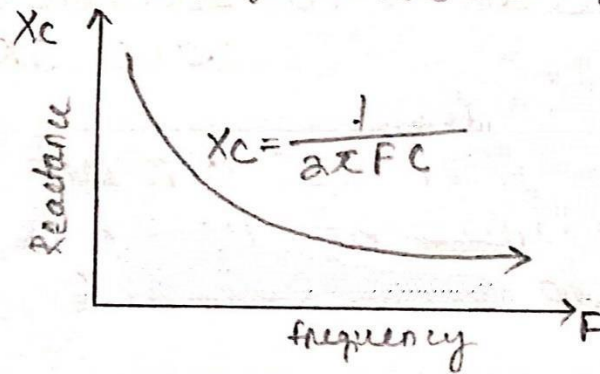 Xc
Reactance
Xc = 1 / 2πFC
frequency
F